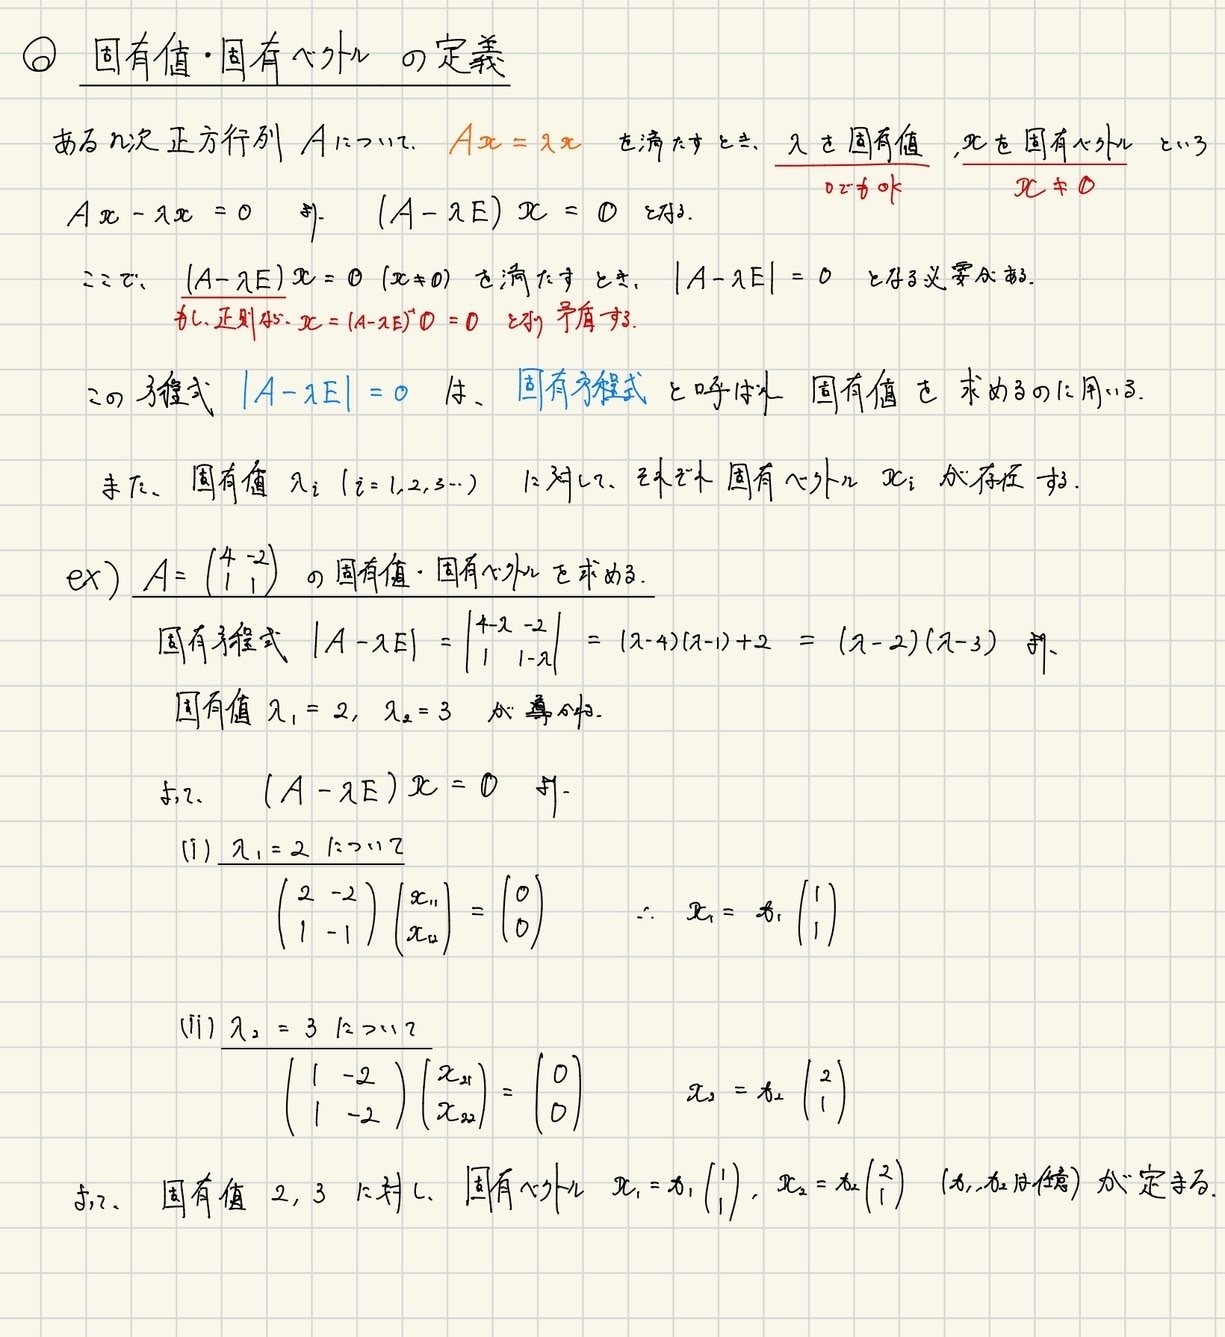 ◎ 固有値・固有ベクトル の定義
ある n次 正方行列 Aについて、 Ax = λx を満たすとき、 λを固有値、xを固有ベクトル という
0でもok x ≠ 0
Ax - λx = 0 より、 (A - λE)x = 0 となる.
ここで、 (A - λE)x = 0 (x≠0) を満たすとき、 |A - λE| = 0 となる必要がある.
もし、正則なら、x = (A-λE)⁻¹0 = 0 となり 矛盾する.
この方程式 |A - λE| = 0 は、 固有方程式 と呼ばれ 固有値を 求めるのに用いる.
また、 固有値 λi (i = 1,2,3…) に対して、それぞれ 固有ベクトル xi が存在する.
ex) A = (4 -2
1 1) の固有値・固有ベクトルを求める.
固有方程式 |A - λE| = |4-λ -2
1 1-λ| = (λ-4)(λ-1)+2 = (λ-2)(λ-3) より、
固有値 λ₁ = 2, λ₂ = 3 が 導かれる.
よって、 (A - λE)x = 0 より.
(i) λ₁ = 2 について
(2 -2
1 -1) (x₁₁
x₁₂) = (0
0) ∴ x₁ = t₁ (1
1)
(ii) λ₂ = 3 について
(1 -2
1 -2) (x₂₁
x₂₂) = (0
0) x₂ = t₂ (2
1)
よって、 固有値 2, 3 に対し、 固有ベクトル x₁ = t₁ (1
1), x₂ = t₂ (2
1) (t₁, t₂は任意) が定まる.